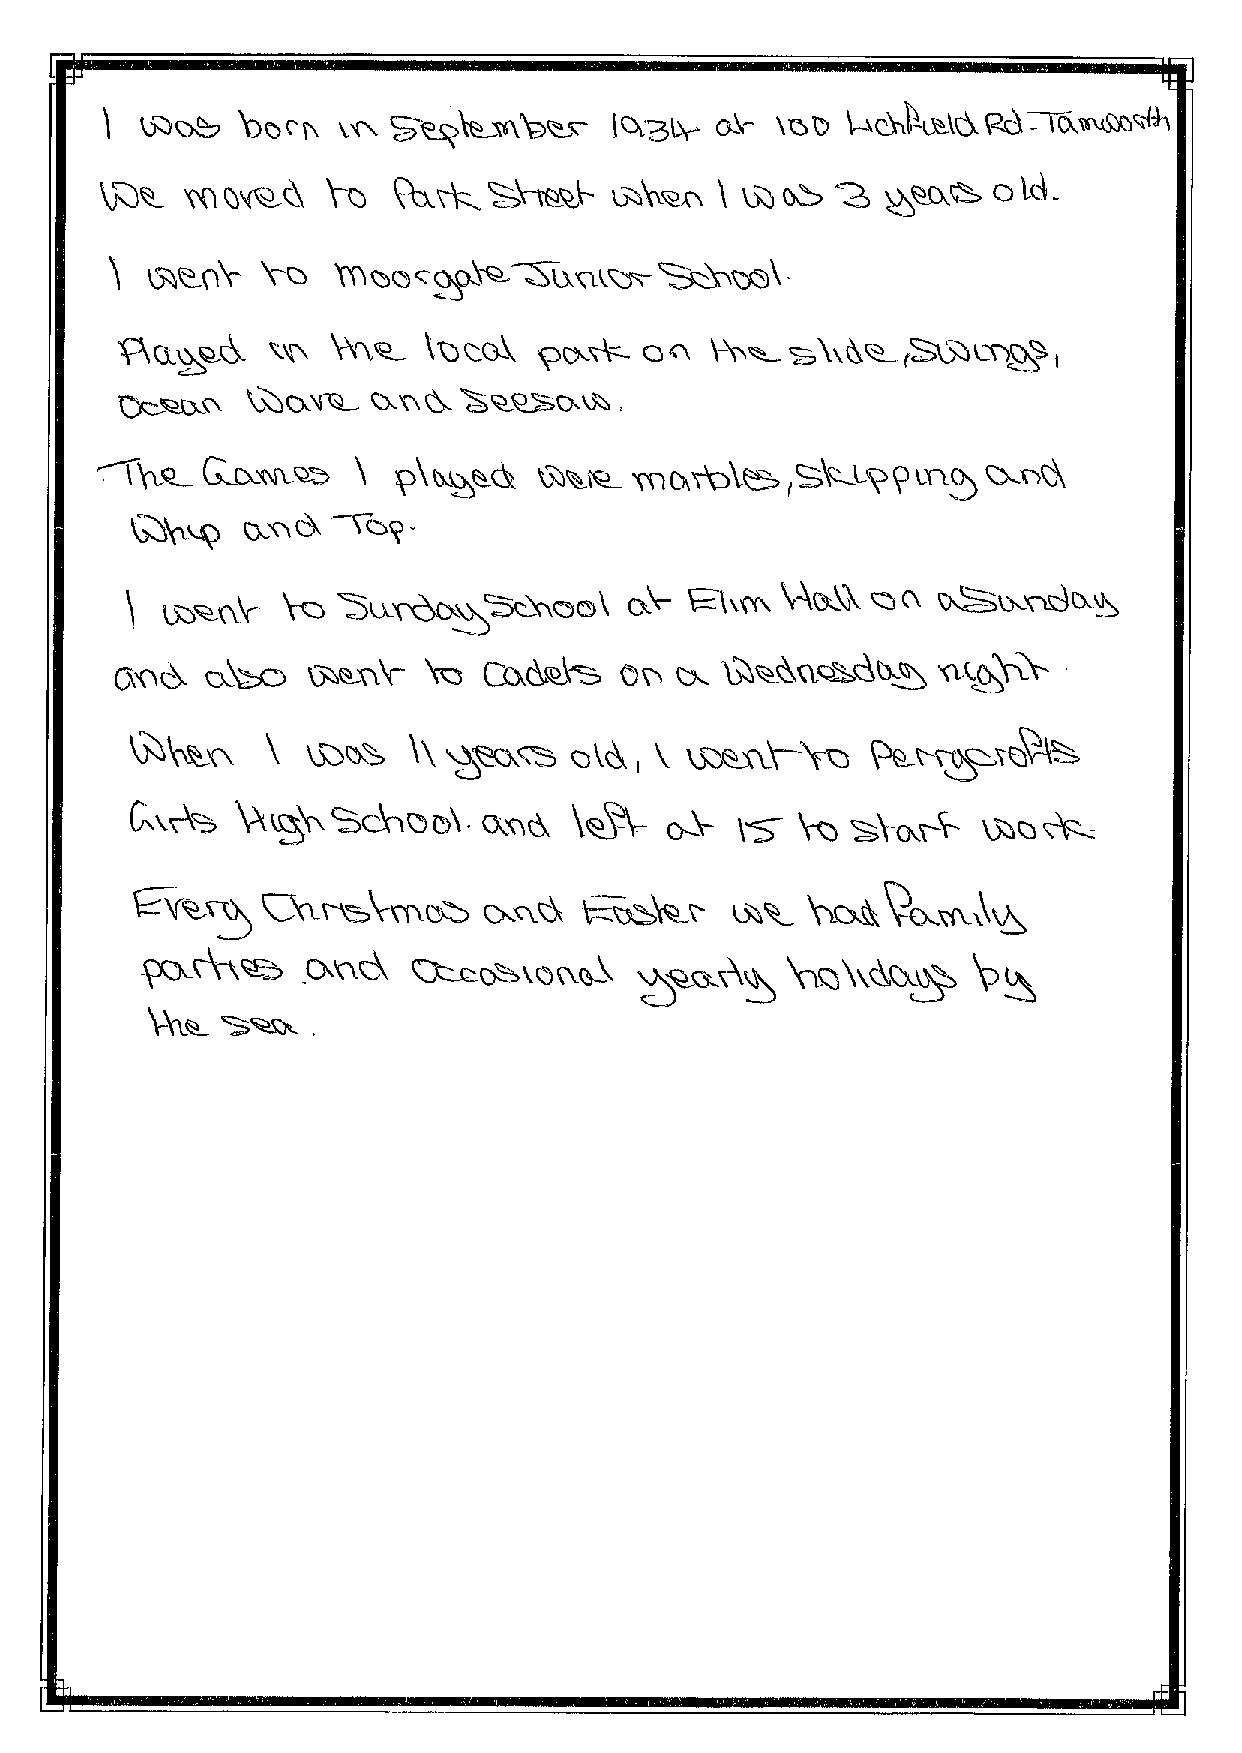 I was born in September 1934 at 100 Lichfield Rd-Tamworth
We moved to Park Street when I was 3 years old.
I went to Moorgate Junior School.
Played in the local park on the slide, Swings,
Ocean Wave and Seesaw.
The Games I played were marbles, Skipping and
Whip and Top.
I went to Sunday School at Elim Hall on a Sunday
and also went to Cadets on a Wednesday night.
When I was 11 years old, I went to Perrycrofts
Girls High School. and left at 15 to start work.
Every Christmas and Easter we had family
parties and occasional yearly holidays by
the sea.